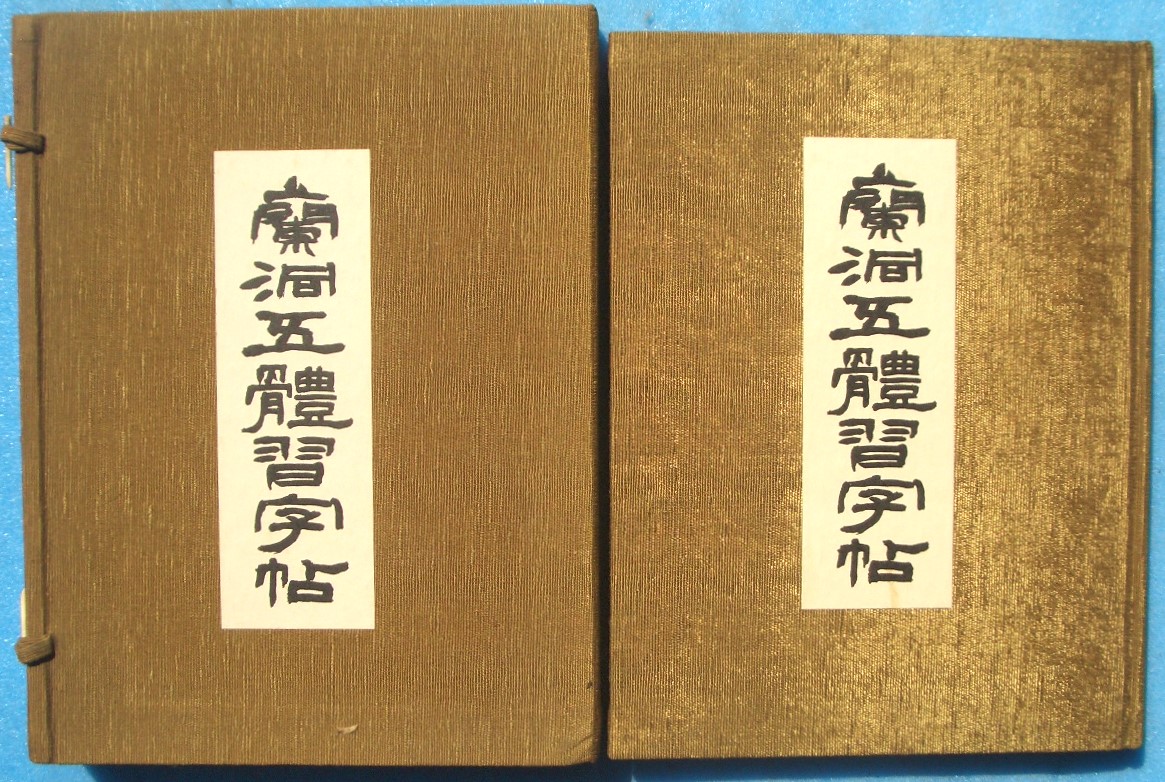 蘭洞五體習字帖
蘭洞五體習字帖